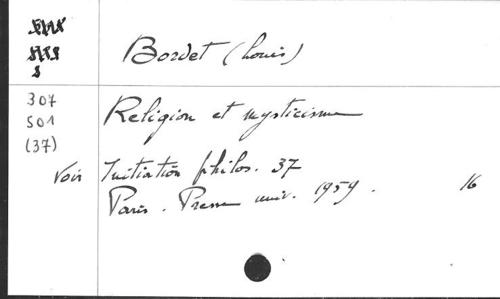 Bordet (Louis)
307
S01
(37)
Religion et mysticisme
Voir Initiation philos. 37
Paris. Presse univ. 1959. 16